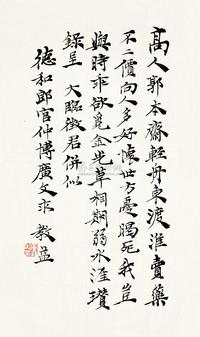 高人郭本齋輕舟東渡淮賣藥
不二價向人多好懷世方憂暍死我豈
與時乖欲覓金光草相期弱水涯瓚
錄呈 大臨徵君併似
德和郎官仲博廣文求 教益